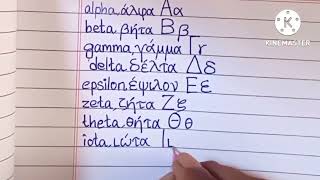 alpha, άλφα Αα
beta, βήτα Ββ
gamma, γάμμα Γγ
delta, δέλτα Δδ
epsilon, έψιλον Εε
zeta, ζήτα Ζζ
theta, θήτα Θθ
iota, ιώτα Ιι
KINEMASTER